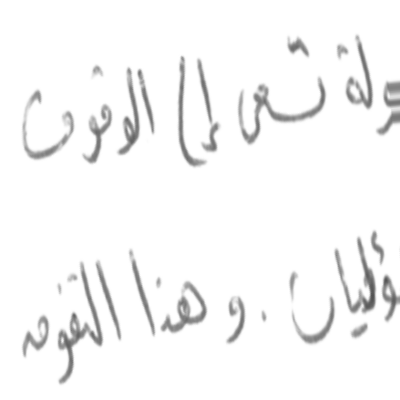 لة تسعى إلى الوقوف
ؤليات . وهذا التقوم